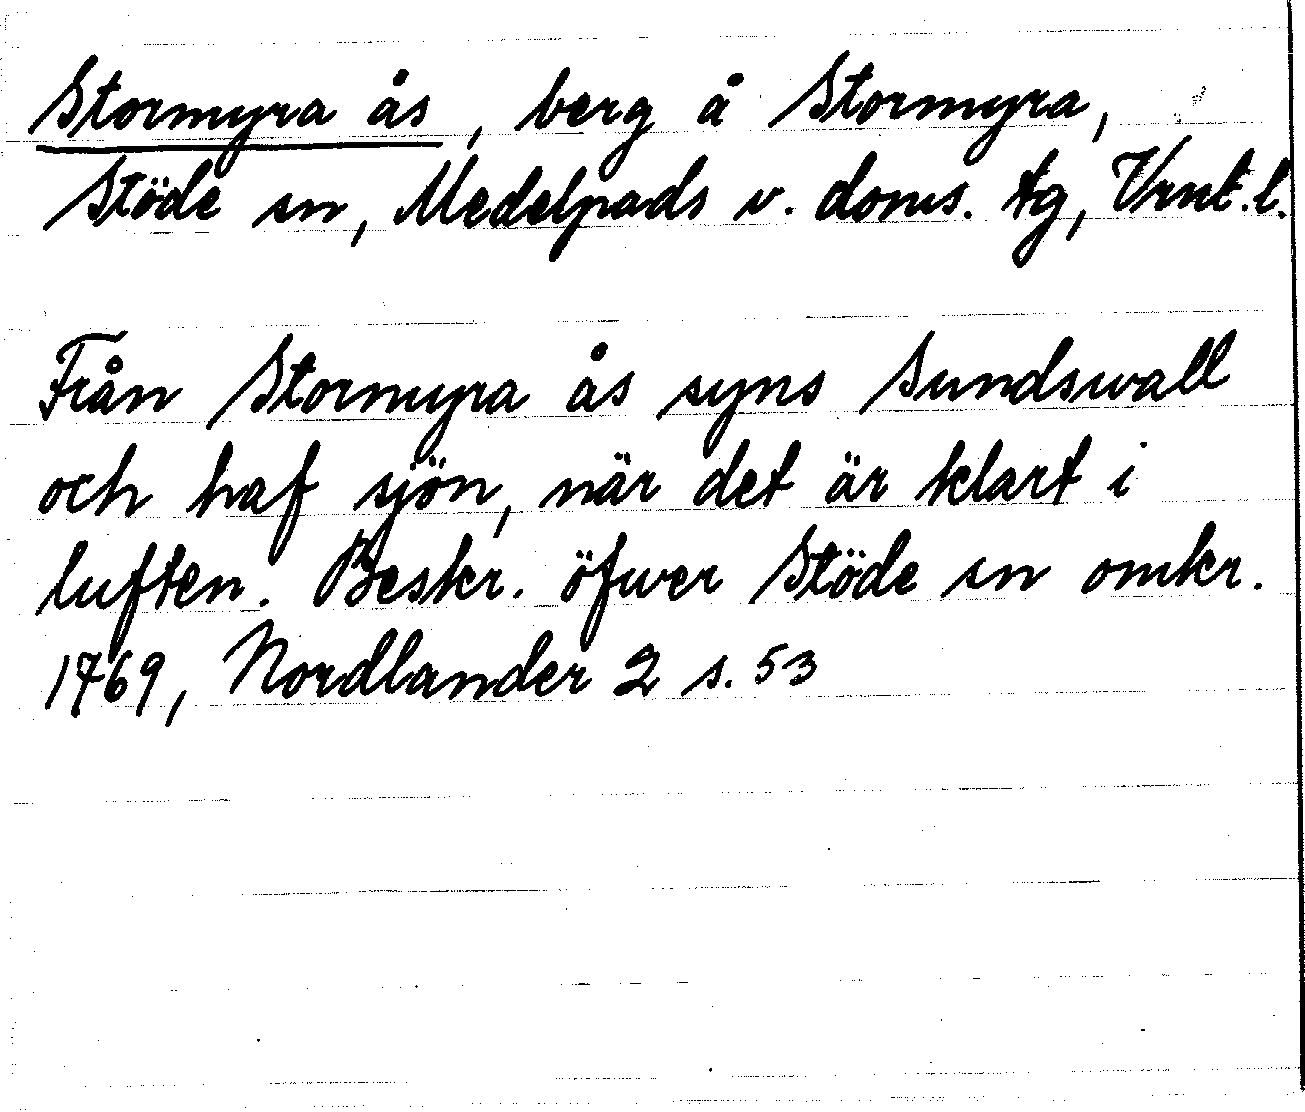 Stormyra ås, berg å Stormyra,
Stöde sn, Medelpads v. doms. tg, Vrnt. l.
Från Stormyra ås syns Sundswall
och haf sjön, när det är klart i
luften. Beskr. öfwer Stöde sn omkr.
1769, Nordlander 2 s. 53